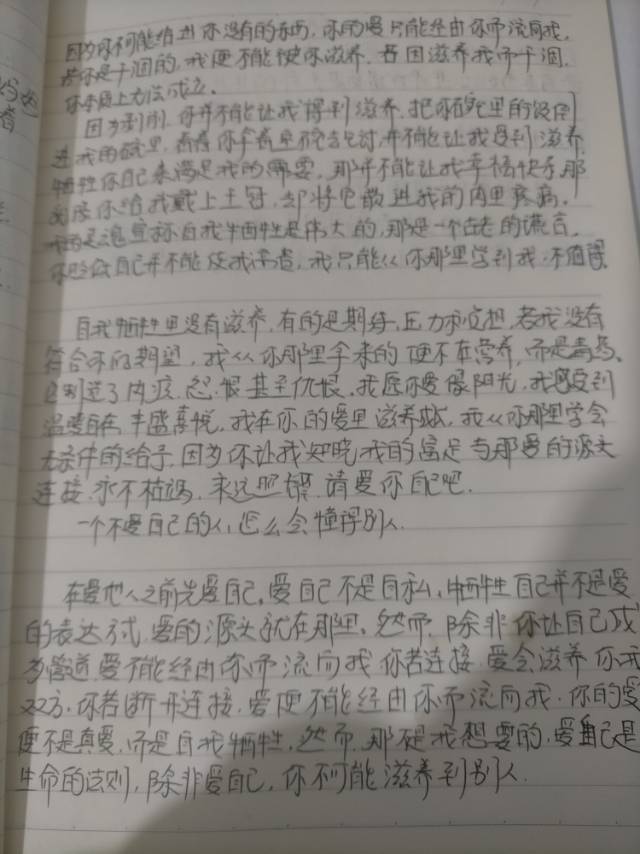 因为你不可能给出你没有的东西，你的爱只能经由你而流向我，
若你是干涸的，我便不能被你滋养，若因滋养我而干涸，
你本质上无法成立。
因为剥削你并不能让我得到滋养，把你碗里的饭倒
进我的碗里，看着你拿着空碗去乞讨，并不能让我受到滋养
牺牲你自己来满足我的需要，那并不能让我幸福快乐，那
就像你给我戴上王冠，却将它嵌进我的肉里疼痛，
宣称自我牺牲是伟大的，那是一个古老的谎言，
你贬低自己并不能使我高贵，我只能从你那里学到我不值得
自我牺牲里没有滋养，有的是期待，压力和负担，若我没有
符合你的期望，我从你那里拿来的便不是营养，而是毒药，
它制造了内疚，怨恨甚至仇恨，我愿你爱像阳光，我感受到
温暖自在丰盛喜悦，我在你的爱里滋养成，我从你那里学会
无条件的给予，因为你让我知晓我的富足与那爱的源头
连接，永不枯竭，永远照耀，请爱你自己吧，
一个不爱自己的人，怎么会懂得别人
在爱他人之前先爱自己，爱自己不是自私，牺牲自己并不是爱
的表达方式，爱的源头就在那里，然而，除非你让自己成
为管道，爱不能经由你而流向我，你若连接，爱会滋养你我
双方，你若断开连接，爱便不能经由你而流向我，你的爱
便不是真爱，而是自我牺牲，然而，那不是我想要的，爱自己是
生命的法则，除非爱自己，你不可能滋养到别人